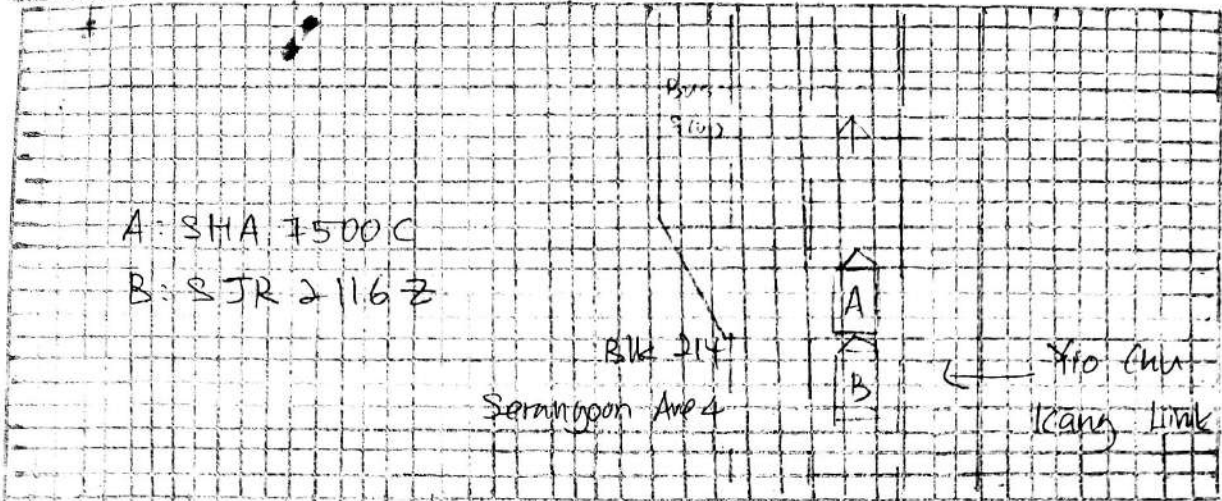 Bus
Stop
A: SHA 7500C
B: SJR 2116Z
A
Blk 214
B
Serangoon Ave 4
Yio Chu
Kang Link